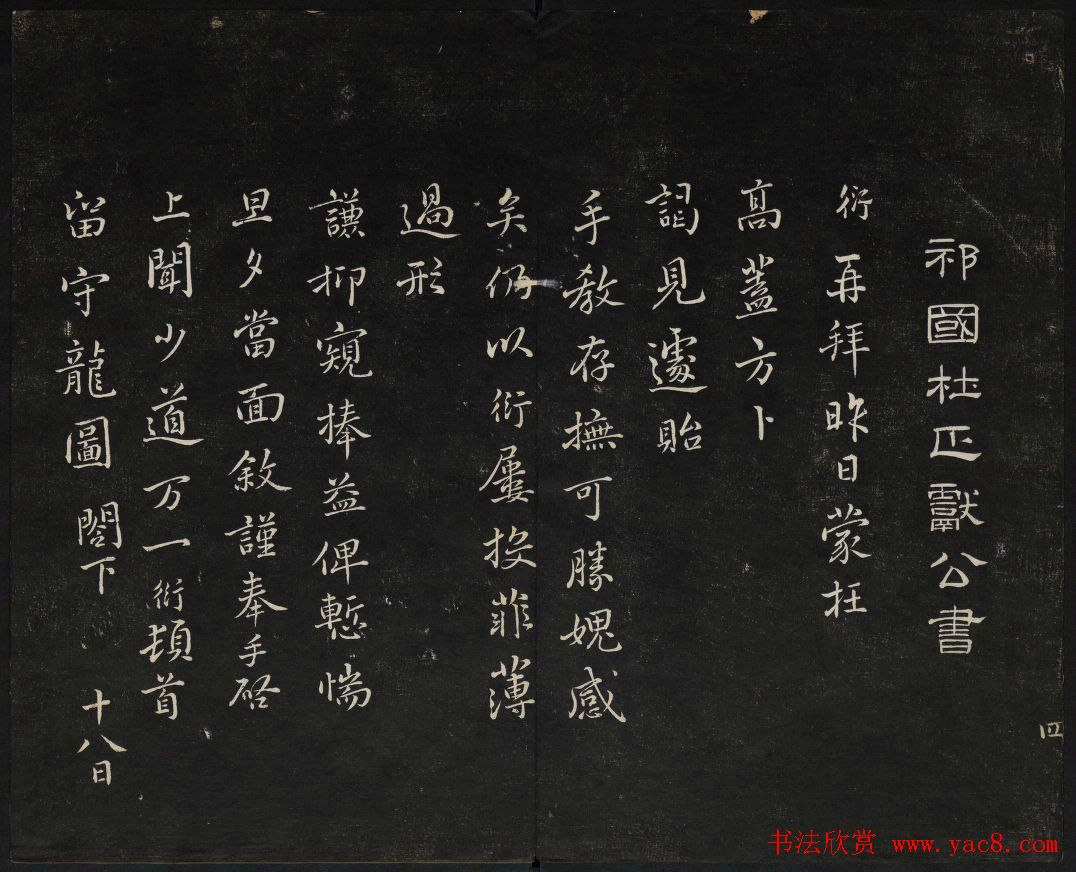 祁國杜正獻公書
衍再拜昨日蒙枉
高蓋方卜
謁見遽貽
手教存撫可勝媿感
矣仍以衍屢投菲薄
過形
謙抑窺捧益俾慙惴
旦夕當面敘謹奉手啓
上聞少道万一衍頓首
留守龍圖閤下 十八日
四
书法欣赏 www.yac8.com